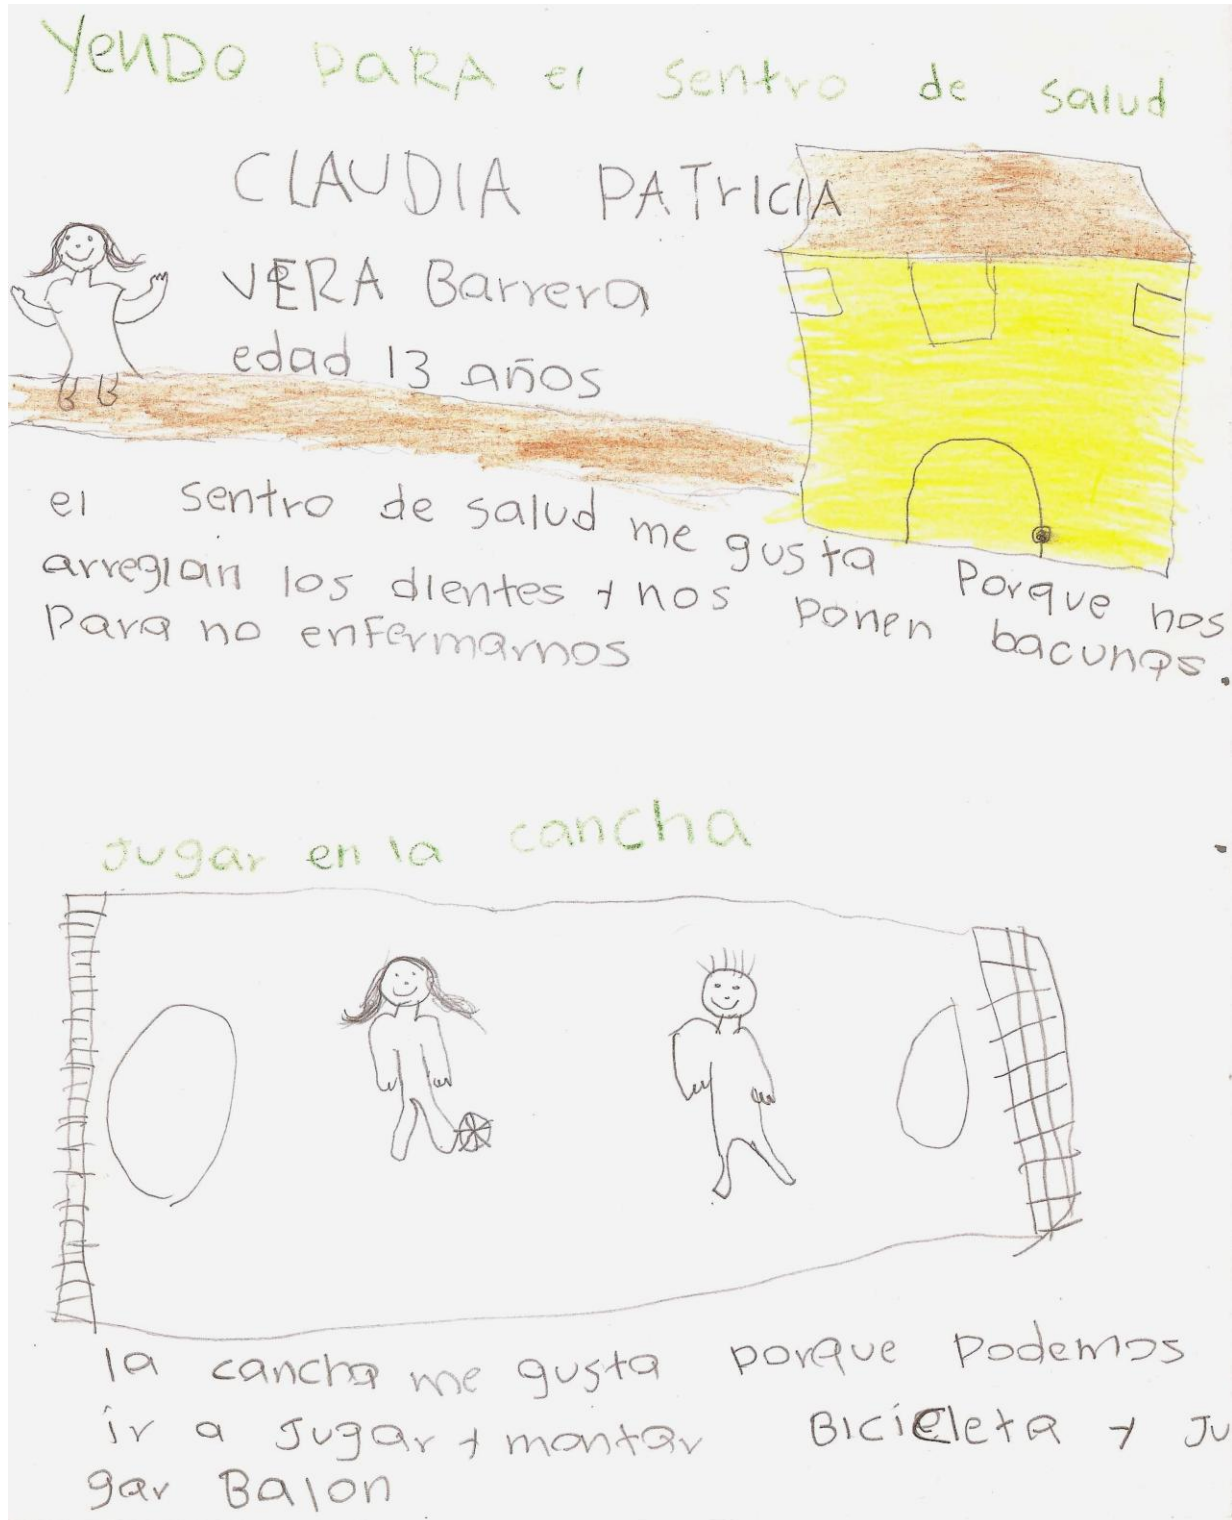 YeNDo PaRA el sentro de salud
CLAUDIA PATrICIA
VERA Barrera
edad 13 años
el sentro de salud me gusta Porque nos
arreglan los dientes y nos ponen bacunas.
Para no enfermarnos
Jugar en la cancha
la cancha me gusta porque Podemos
ir a Jugar y montar BiCicleta y Ju
gar Balon